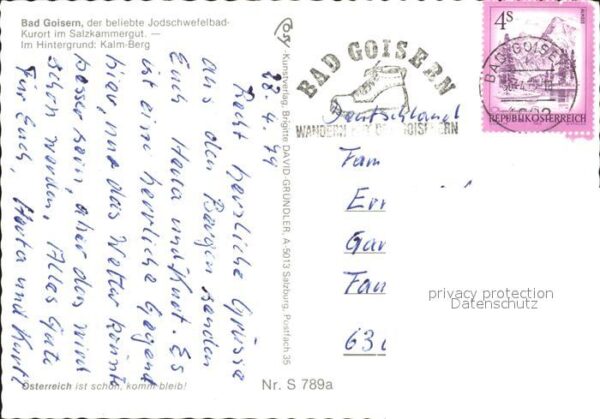 Bad Goisern, der beliebte Jodschwefelbad-
Kurort im Salzkammergut. —
Im Hintergrund: Kalm-Berg
23.4.79
Recht herzliche Grüsse
aus den Bergen senden
Euch Herta und Kurt. Es
ist eine herrliche Gegend
hier, nur das Wetter könnte
besser sein, aber das wird
schon werden. Alles Gute
für Euch, Herta und Kurt
Österreich ist schön, komm bleib!
Kunstverlag: Brigitte DAVID-GRÜNDLER, A-5013 Salzburg, Postfach 35
Nr. S 789a
BAD GOISERN
WANDERN BAD GOISERN
4S
ALMSEE
REPUBLIK ÖSTERREICH
BAD GOISERN
Deutschland
Fam
Err
Gar
Fam
63
privacy protection
Datenschutz